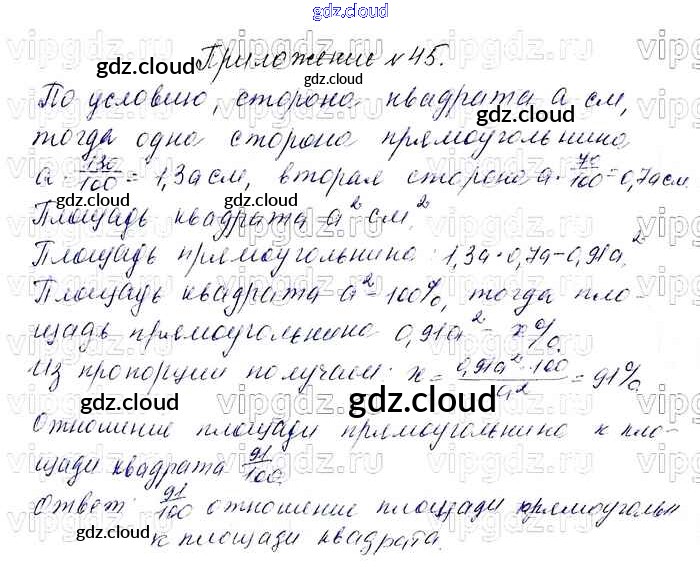 gdz.cloud
Приложение №45.
По условию, сторона квадрата a см,
тогда одна сторона прямоугольника
a · 130/100 = 1,3a см, вторая сторона a · 70/100 = 0,7a см
Площадь квадрата a² см²
Площадь прямоугольника: 1,3a · 0,7a = 0,91a²
Площадь квадрата a² – 100%, тогда пло-
щадь прямоугольника 0,91a² – x%
Из пропорции получаем: x = 0,91a² · 100 / a² = 91%
Отношение площади прямоугольника к пло-
щади квадрата 91/100.
Ответ: 91/100 отношение площади прямоугольн
к площади квадрата.